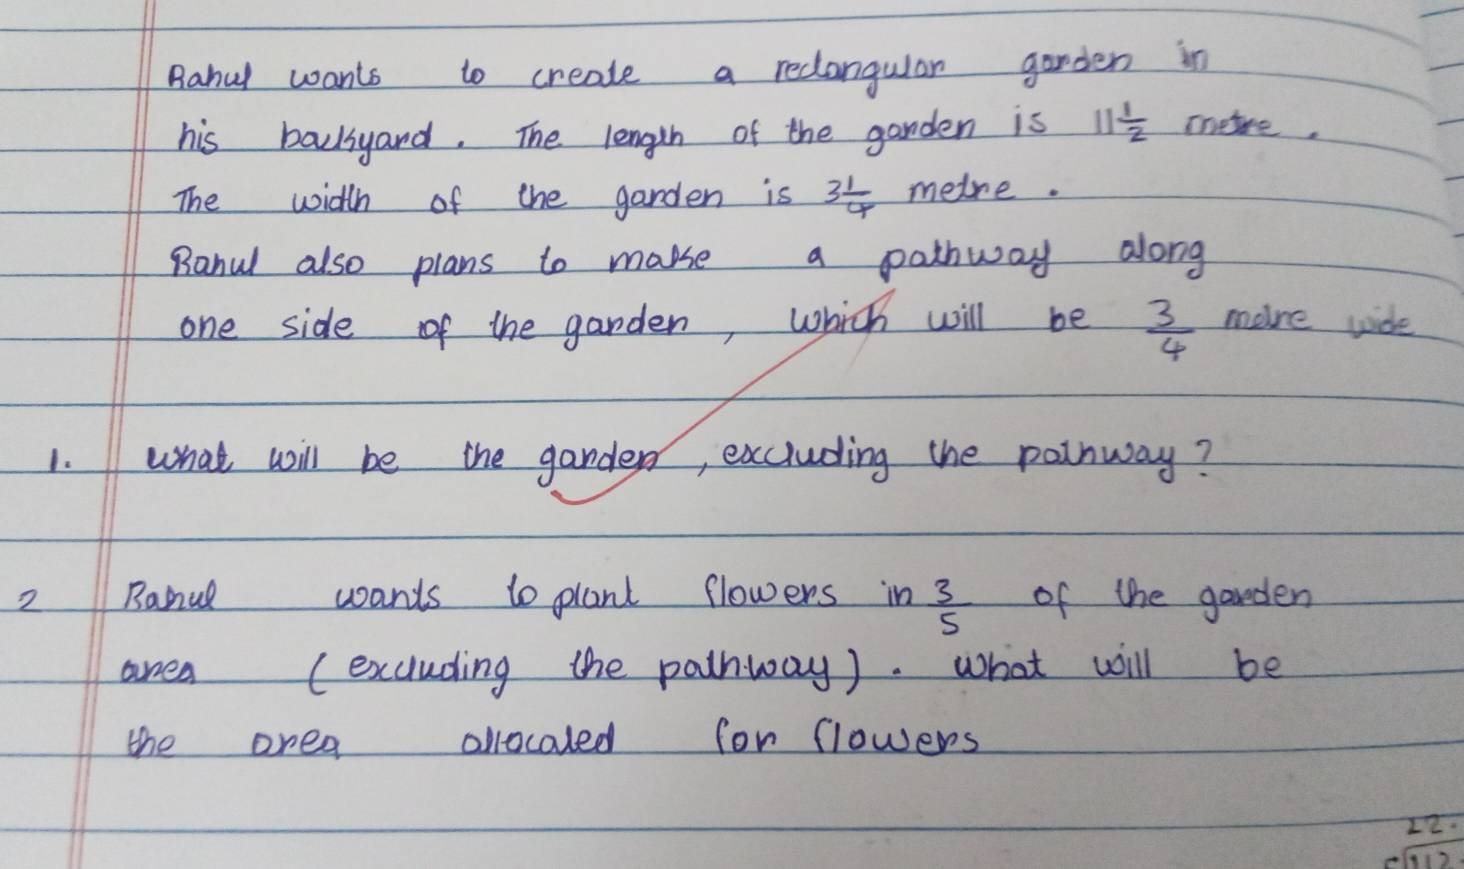 Rahul wants to create a rectangular garden in
his backyard. The length of the garden is 11 1/2 metre.
The width of the garden is 3 1/4 metre.
Rahul also plans to make a pathway along
one side of the garden, which will be 3/4 metre wide
1. What will be the garden, excluding the pathway?
2 Rahul wants to plant flowers in 3/5 of the garden
area (excluding the pathway). What will be
the area allocated for flowers
22.